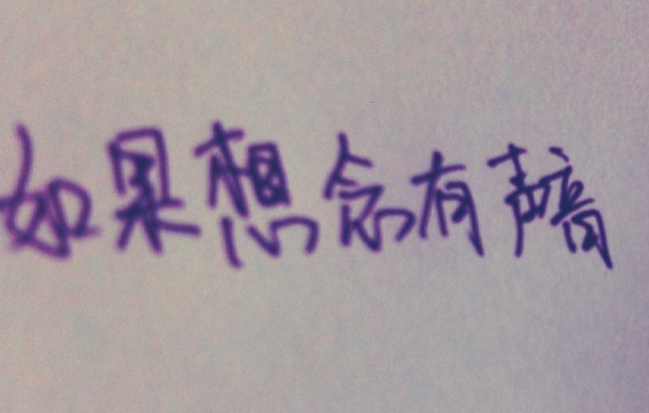 如果想念有声音